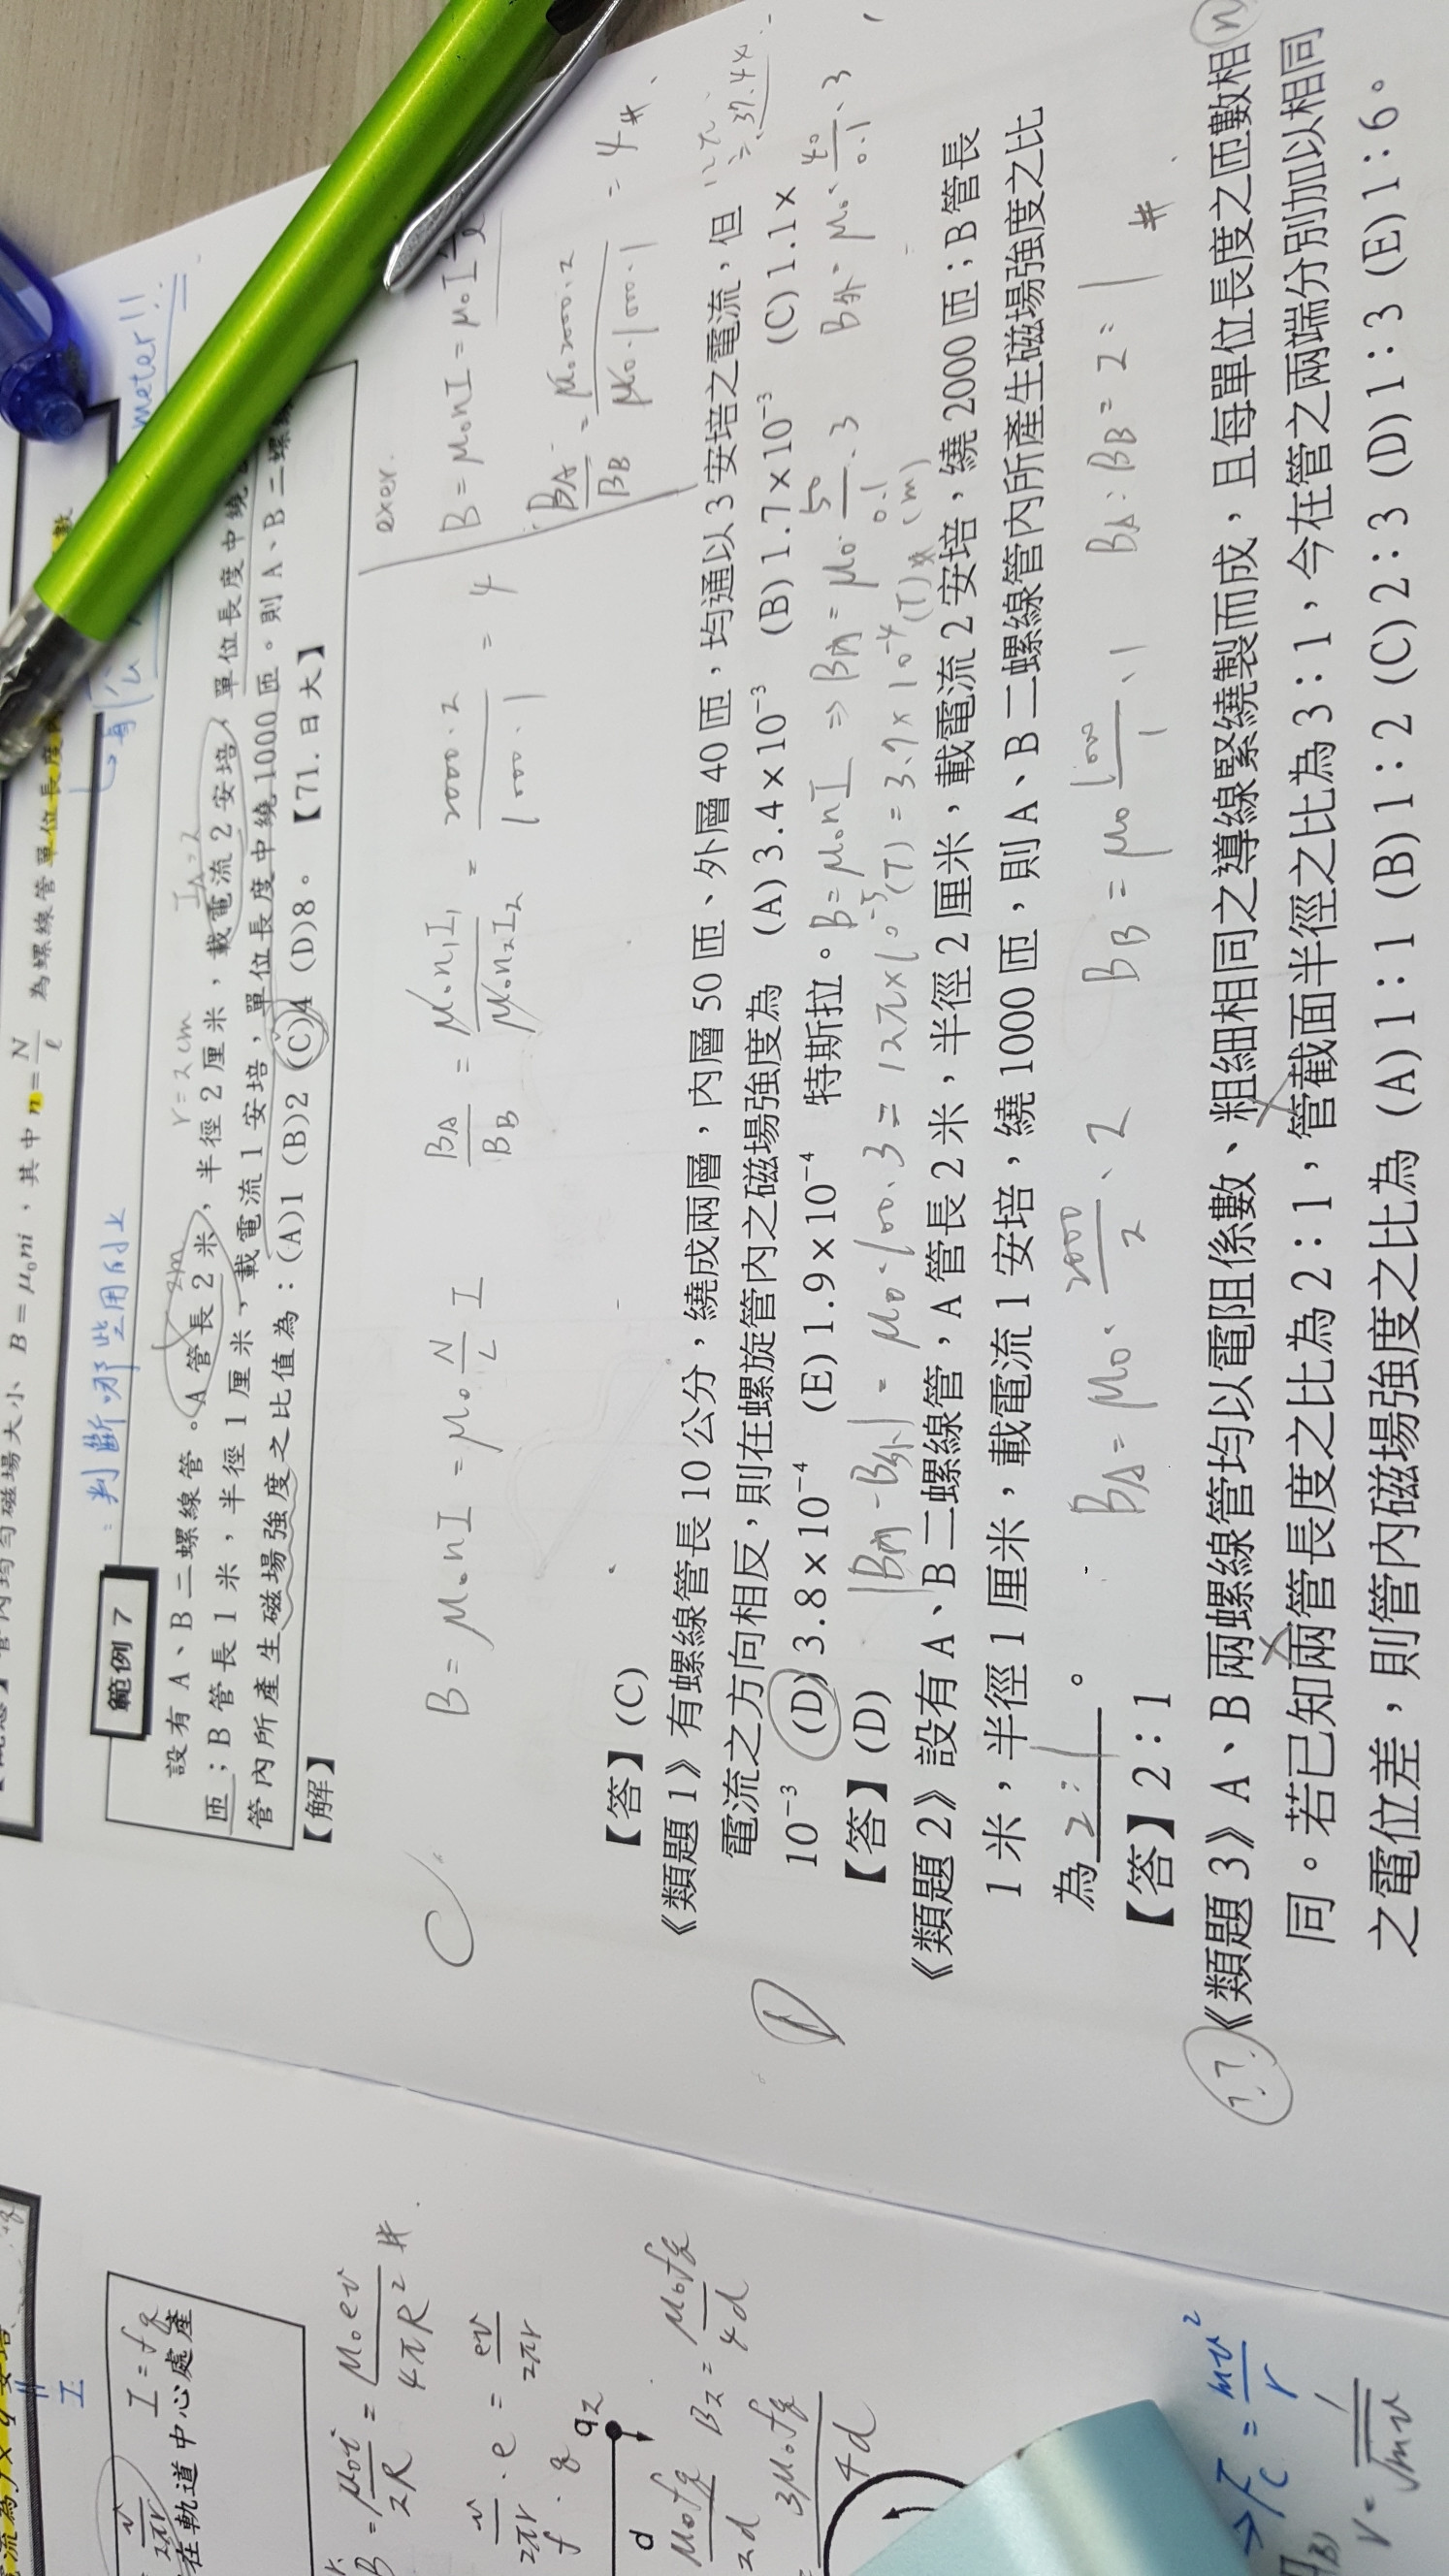 管內均勻磁場大小 B = μ₀ni，其中 n = N/ℓ 為螺線管單位長度
判斷哪些用的上
meter!!
範例 7
設有 A、B 二螺線管。A 管長 2 米，半徑 2 厘米，載電流 2 安培，單位長度中繞
匝；B 管長 1 米，半徑 1 厘米，載電流 1 安培，單位長度中繞 1000 匝。則 A、B 二螺線
管內所產生磁場強度之比值為：(A)1 (B)2 (C)4 (D)8。【71.日大】
2m
r=2cm
【解】
exer.
B = μ₀nI = μ₀ N/L I
BA/BB = μ₀n₁I₁/μ₀n₂I₂ = 2000·2/1000·1 = 4
B = μ₀nI = μ₀I
BA/BB = μ₀·2000·2/μ₀·1000·1 = 4#
【答】(C)
《類題 1》有螺線管長 10 公分，繞成兩層，內層 50 匝、外層 40 匝，均通以 3 安培之電流，但
電流之方向相反，則在螺旋管內之磁場強度為 (A)3.4×10⁻³ (B)1.7×10⁻³ (C)1.1×
10⁻³ (D)3.8×10⁻⁴ (E)1.9×10⁻⁴ 特斯拉。
B = μ₀nI ⇒ B內 = μ₀·50/0.1·3
(m)
B外 = μ₀·40/0.1·3
|B內 - B外| = μ₀·100·3 = 12π×10⁻⁵(T) = 3.7×10⁻⁴(T)
【答】(D)
《類題 2》設有 A、B 二螺線管，A 管長 2 米，半徑 2 厘米，載電流 2 安培，繞 2000 匝；B 管長
1 米，半徑 1 厘米，載電流 1 安培，繞 1000 匝，則 A、B 二螺線管內所產生磁場強度之比
為 2:1 。
BA = μ₀·2000/2·2
BB = μ₀ 1000/1·1
BA:BB = 2:1 #
【答】2：1
??
《類題 3》A、B 兩螺線管均以電阻係數、粗細相同之導線緊繞製而成，且每單位長度之匝數相
n
同。若已知兩管長度之比為 2：1，管截面半徑之比為 3：1，今在管之兩端分別加以相同
之電位差，則管內磁場強度之比為 (A)1：1 (B)1：2 (C)2：3 (D)1：3 (E)1：6。
I = fq
在軌道中心處產
B = μ₀i/2R = μ₀ev/4πR² #
v/2πr·e = ev/2πr
q₂
d
B₂ = μ₀fq/4d
μ₀fq/2d
3μ₀fq/4d
⇒ Fc = mv²/r